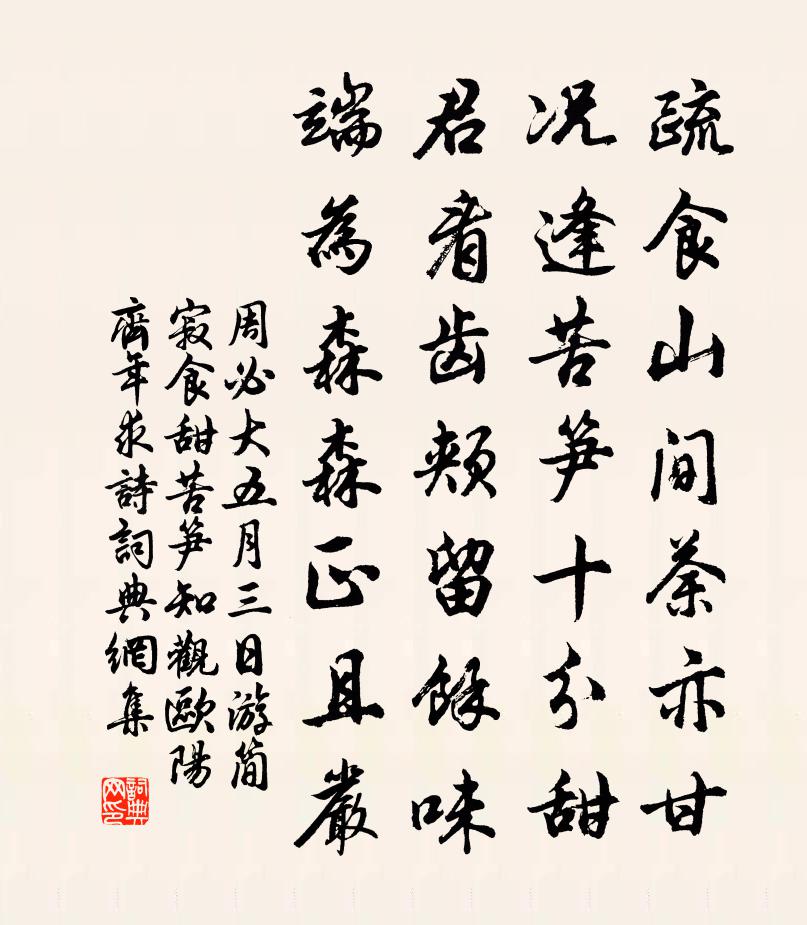 疏食山間茶亦甘
況逢苦笋十分甜
君看齒頰留餘味
端為森森正且嚴
周必大五月三日游簡
寂食甜苦笋知觀歐陽
齊年求詩詞典網集
詞典
网印